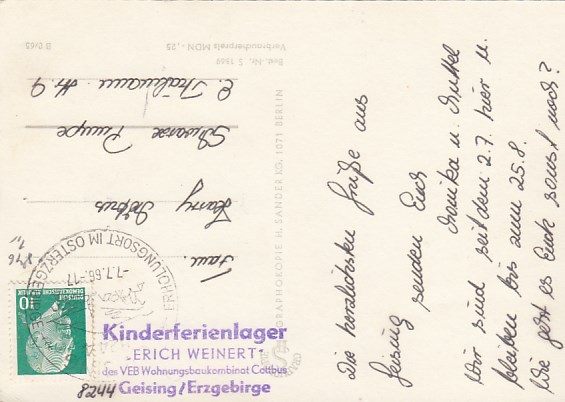 Die herzlichsten Grüße aus
Geising senden Euch
Monika u. Muttel
Wir sind seit dem 2.7. hier u.
bleiben bis zum 25.8.
Wie geht es Euch sonst noch?
Fam.
Harry
Schwarze Pumpe
E. Thälmann Str. 9
8244
10
DEUTSCHE
DEMOKRATISCHE REPUBLIK
ERHOLUNGSORT IM OSTERZGEBIRGE
-7.7.66.-17
Kinderferienlager
„ERICH WEINERT"
des VEB Wohnungsbaukombinat Cottbus
Geising/Erzgebirge
H. SANDER KG, 1071 BERLIN
Best.-Nr. S 1568
Verbraucherpreis MDN -,25